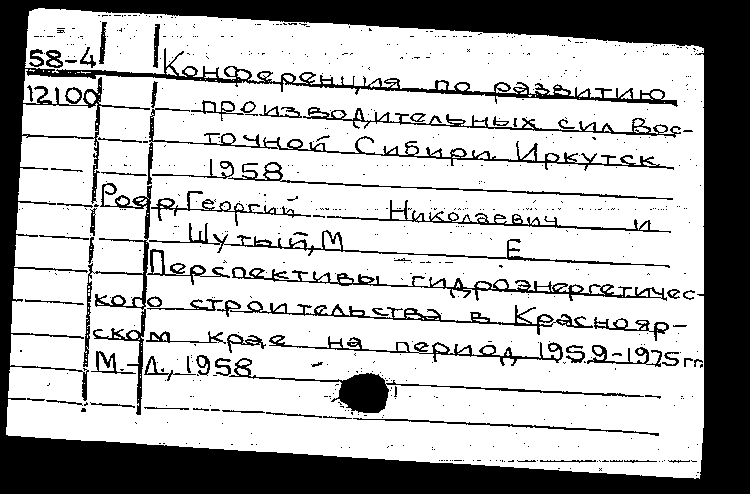 58-4 Конференция по развитию
12100 производительных сил Вос-
точной Сибири. Иркутск
1958
Роер, Георгий Николаевич и
Шутый, М Е
Перспективы гидроэнергетичес-
кого строительства в Краснояр-
ском крае на период 1959-1975 гг
М.-Л., 1958